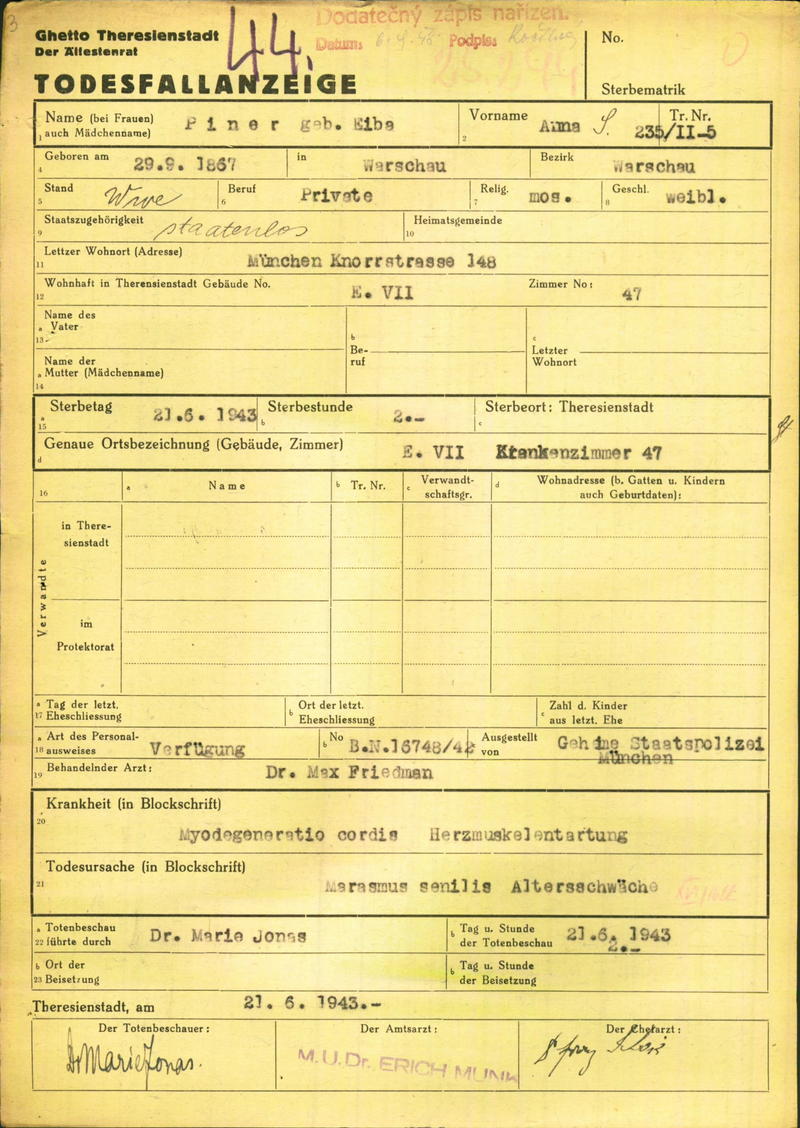 3
44.
Dodatečný zápis nařízen.
Datum: Podpis:
Ghetto Theresienstadt
Der Ältestenrat
TODESFALLANZEIGE
No.
Sterbematrik
Name (bei Frauen) auch Mädchenname) Piner geb. Eibs
1
Vorname Anna S.
2
Tr. Nr. 235/II-5
Geboren am 29.9. 1867 in Warschau Bezirk Warschau
4
Stand Wwe Beruf Private Relig. mos. Geschl. weibl.
5 6 7 8
Staatszugehörigkeit staatenlos Heimatsgemeinde
9 10
Lettzer Wohnort (Adresse) München Knorrstrasse 148
11
Wohnhaft in Therensienstadt Gebäude No. E. VII Zimmer No: 47
12
Name des
a Vater
13
b
Be-
ruf
c
Letzter
Wohnort
Name der
a Mutter (Mädchenname)
14
Sterbetag 21.6. 1943 Sterbestunde 2.- Sterbeort: Theresienstadt
a 15 b c
Genaue Ortsbezeichnung (Gebäude, Zimmer) E. VII Krankenzimmer 47
d
16 a Name b Tr. Nr. c Verwandt-
schaftsgr. d Wohnadresse (b. Gatten u. Kindern
auch Geburtdaten):
Verwandte
in There-
sienstadt
im
Protektorat
a Tag der letzt. b Ort der letzt. c Zahl d. Kinder
17 Eheschliessung Eheschliessung aus letzt. Ehe
a Art des Personal- b No Ausgestellt
18 ausweises Verfügung B.N.16748/42 von Geheime Staatspolizei
München
Behandelnder Arzt: Dr. Max Friedman
19
Krankheit (in Blockschrift)
20
Myodegeneratio cordis Herzmuskelentartung
Todesursache (in Blockschrift)
21
Marasmus senilis Altersschwäche
a Totenbeschau Dr. Marie Jonas b Tag u. Stunde 21.6. 1943
22 führte durch der Totenbeschau 2.-
b Ort der b Tag u. Stunde
23 Beisetzung der Beisetzung
Theresienstadt, am 21. 6. 1943.-
Der Totenbeschauer: Der Amtsarzt: Der Chefarzt:
Dr Marie Jonas.
M.U.Dr. ERICH MUNK